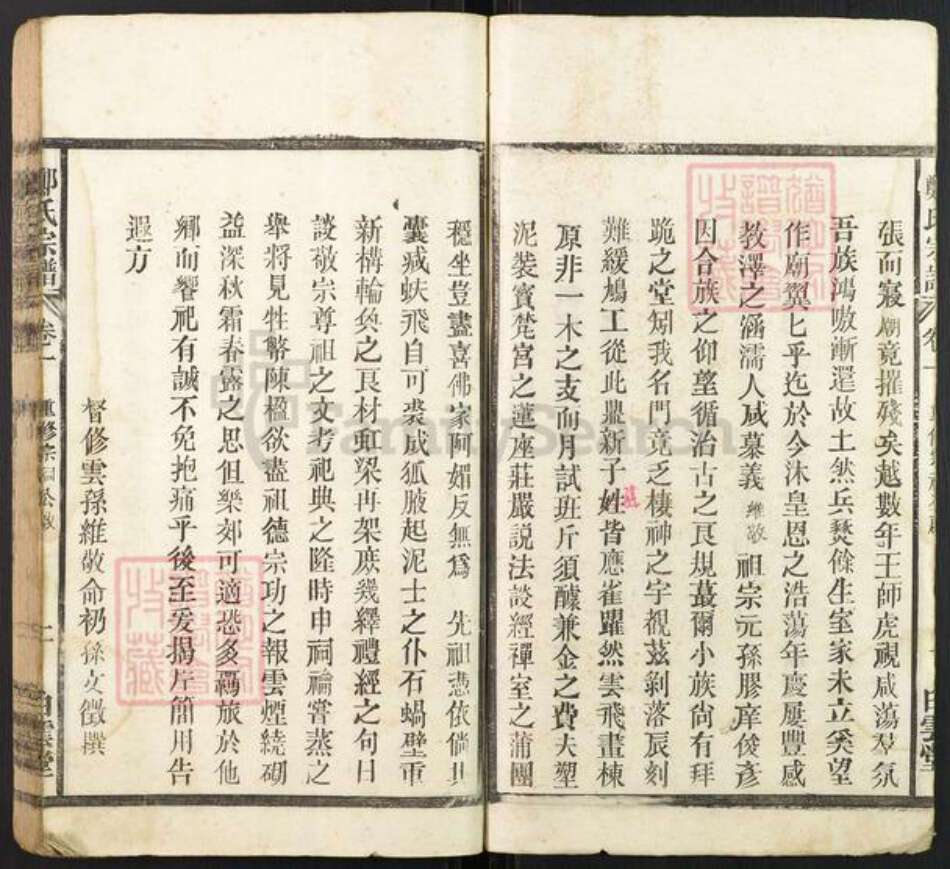 張而寢廟竟摧殘矣越數年王師虎視咸蕩羣氛
吾族鴻嗷漸還故土然兵燹餘生室家未立奚望
作廟翼匕乎迄於今沐皇恩之浩蕩年慶屢豐感
教澤之涵濡人咸慕義維敬祖宗元孫膠庠俊彥
因合族之仰望循治古之良規蕞爾小族尙有拜
跪之堂矧我名門竟乏棲神之宇覩茲剝落辰刻
難緩鳩工從此鼎新子姓皆應雀躍然雲飛畫棟
原非一木之支而月試班斤須醵兼金之費夫塑
泥裝賓梵宮之蓮座莊嚴説法談經禪室之蒲團
穩坐豈盡喜佛家阿媚反無爲 先祖憑依倘其
囊㓕蚨飛自可裘成狐腋起泥士之仆石蝸壁重
新構輪奐之良材虹梁再架庶幾繹禮經之句日
談敬宗尊祖之文考祀典之隆時申祠禴嘗蒸之
舉將見牲幣陳楹欲盡祖德宗功之報雲煙繞砌
益深秋霜春露之思但樂郊可適恐多羈旅於他
鄉而饗祀有誠不免抱痛乎後至爰揭片簡用告
遐方
督修雲孫維敬命礽孫文徵撰
氏宗譜 卷一 重修宗祠公啟 二 白雲堂